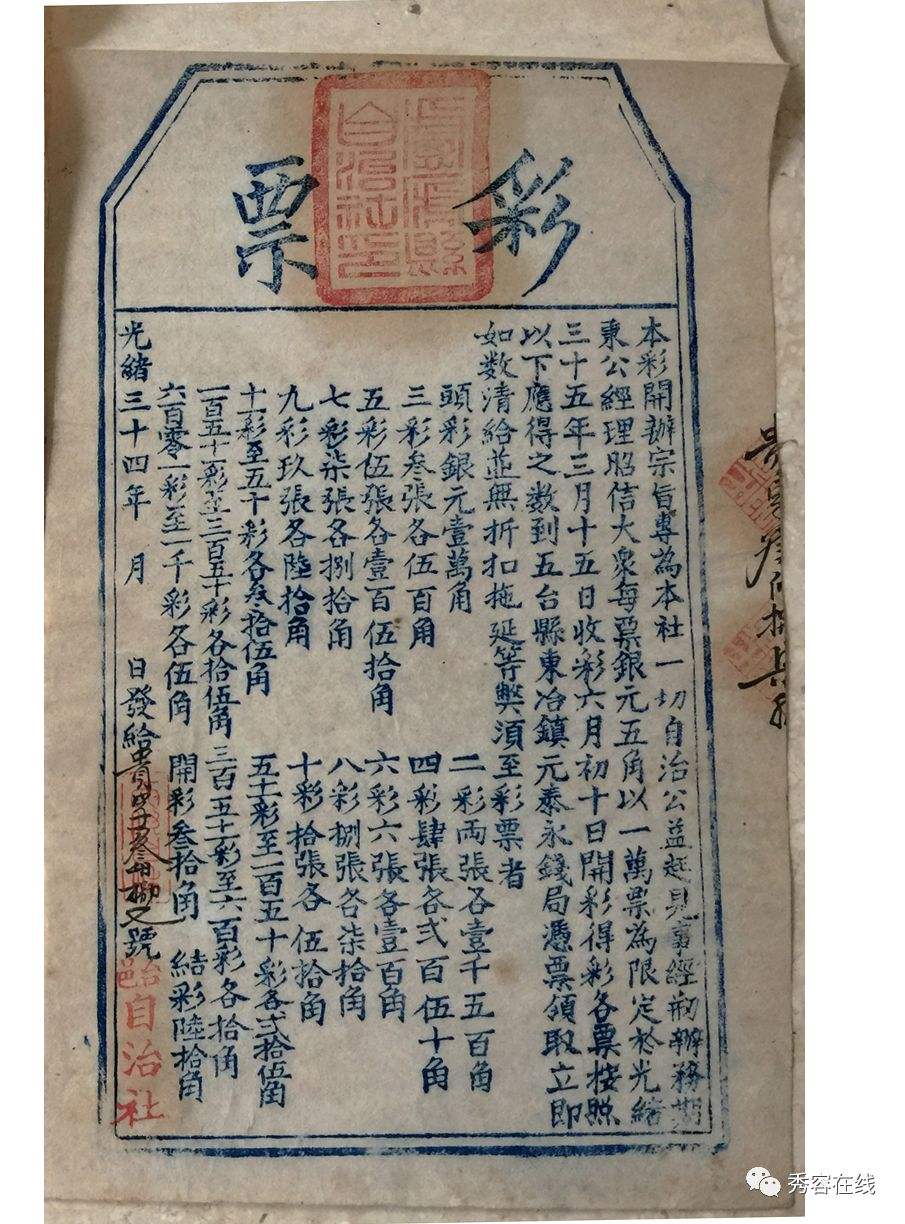 彩票
本彩開辦宗旨專為本社一切自治公益起見事經刱辦務期
東公經理昭信大衆每票銀元五角以一萬票為限定於光緒
三十五年三月十五日收彩六月初十日開彩得彩各票按照
以下應得之数到五台縣東冶鎮元泰永錢局憑票領取立即
如数清給並無折扣拖延等獘須至彩票者
頭彩銀元壹萬角 二彩両張各壹千五百角
三彩叁張各伍百角 四彩肆張各弍百伍十角
五彩伍張各壹百伍拾角 六彩六張各壹百角
七彩柒張各捌拾角 八彩捌張各柒拾角
九彩玖張各陸拾角 十彩拾張各伍拾角
十一彩至五十彩各叁拾伍角 五十一彩至一百五十彩各弍拾伍角
一百五十一彩至三百五十彩各拾伍角 三百五十一彩至六百彩各拾角
六百零一彩至一千彩各伍角 開彩叁拾角 結彩陸拾角
光緒三十四年 月 日發給貴字 號 自治社
秀容在线